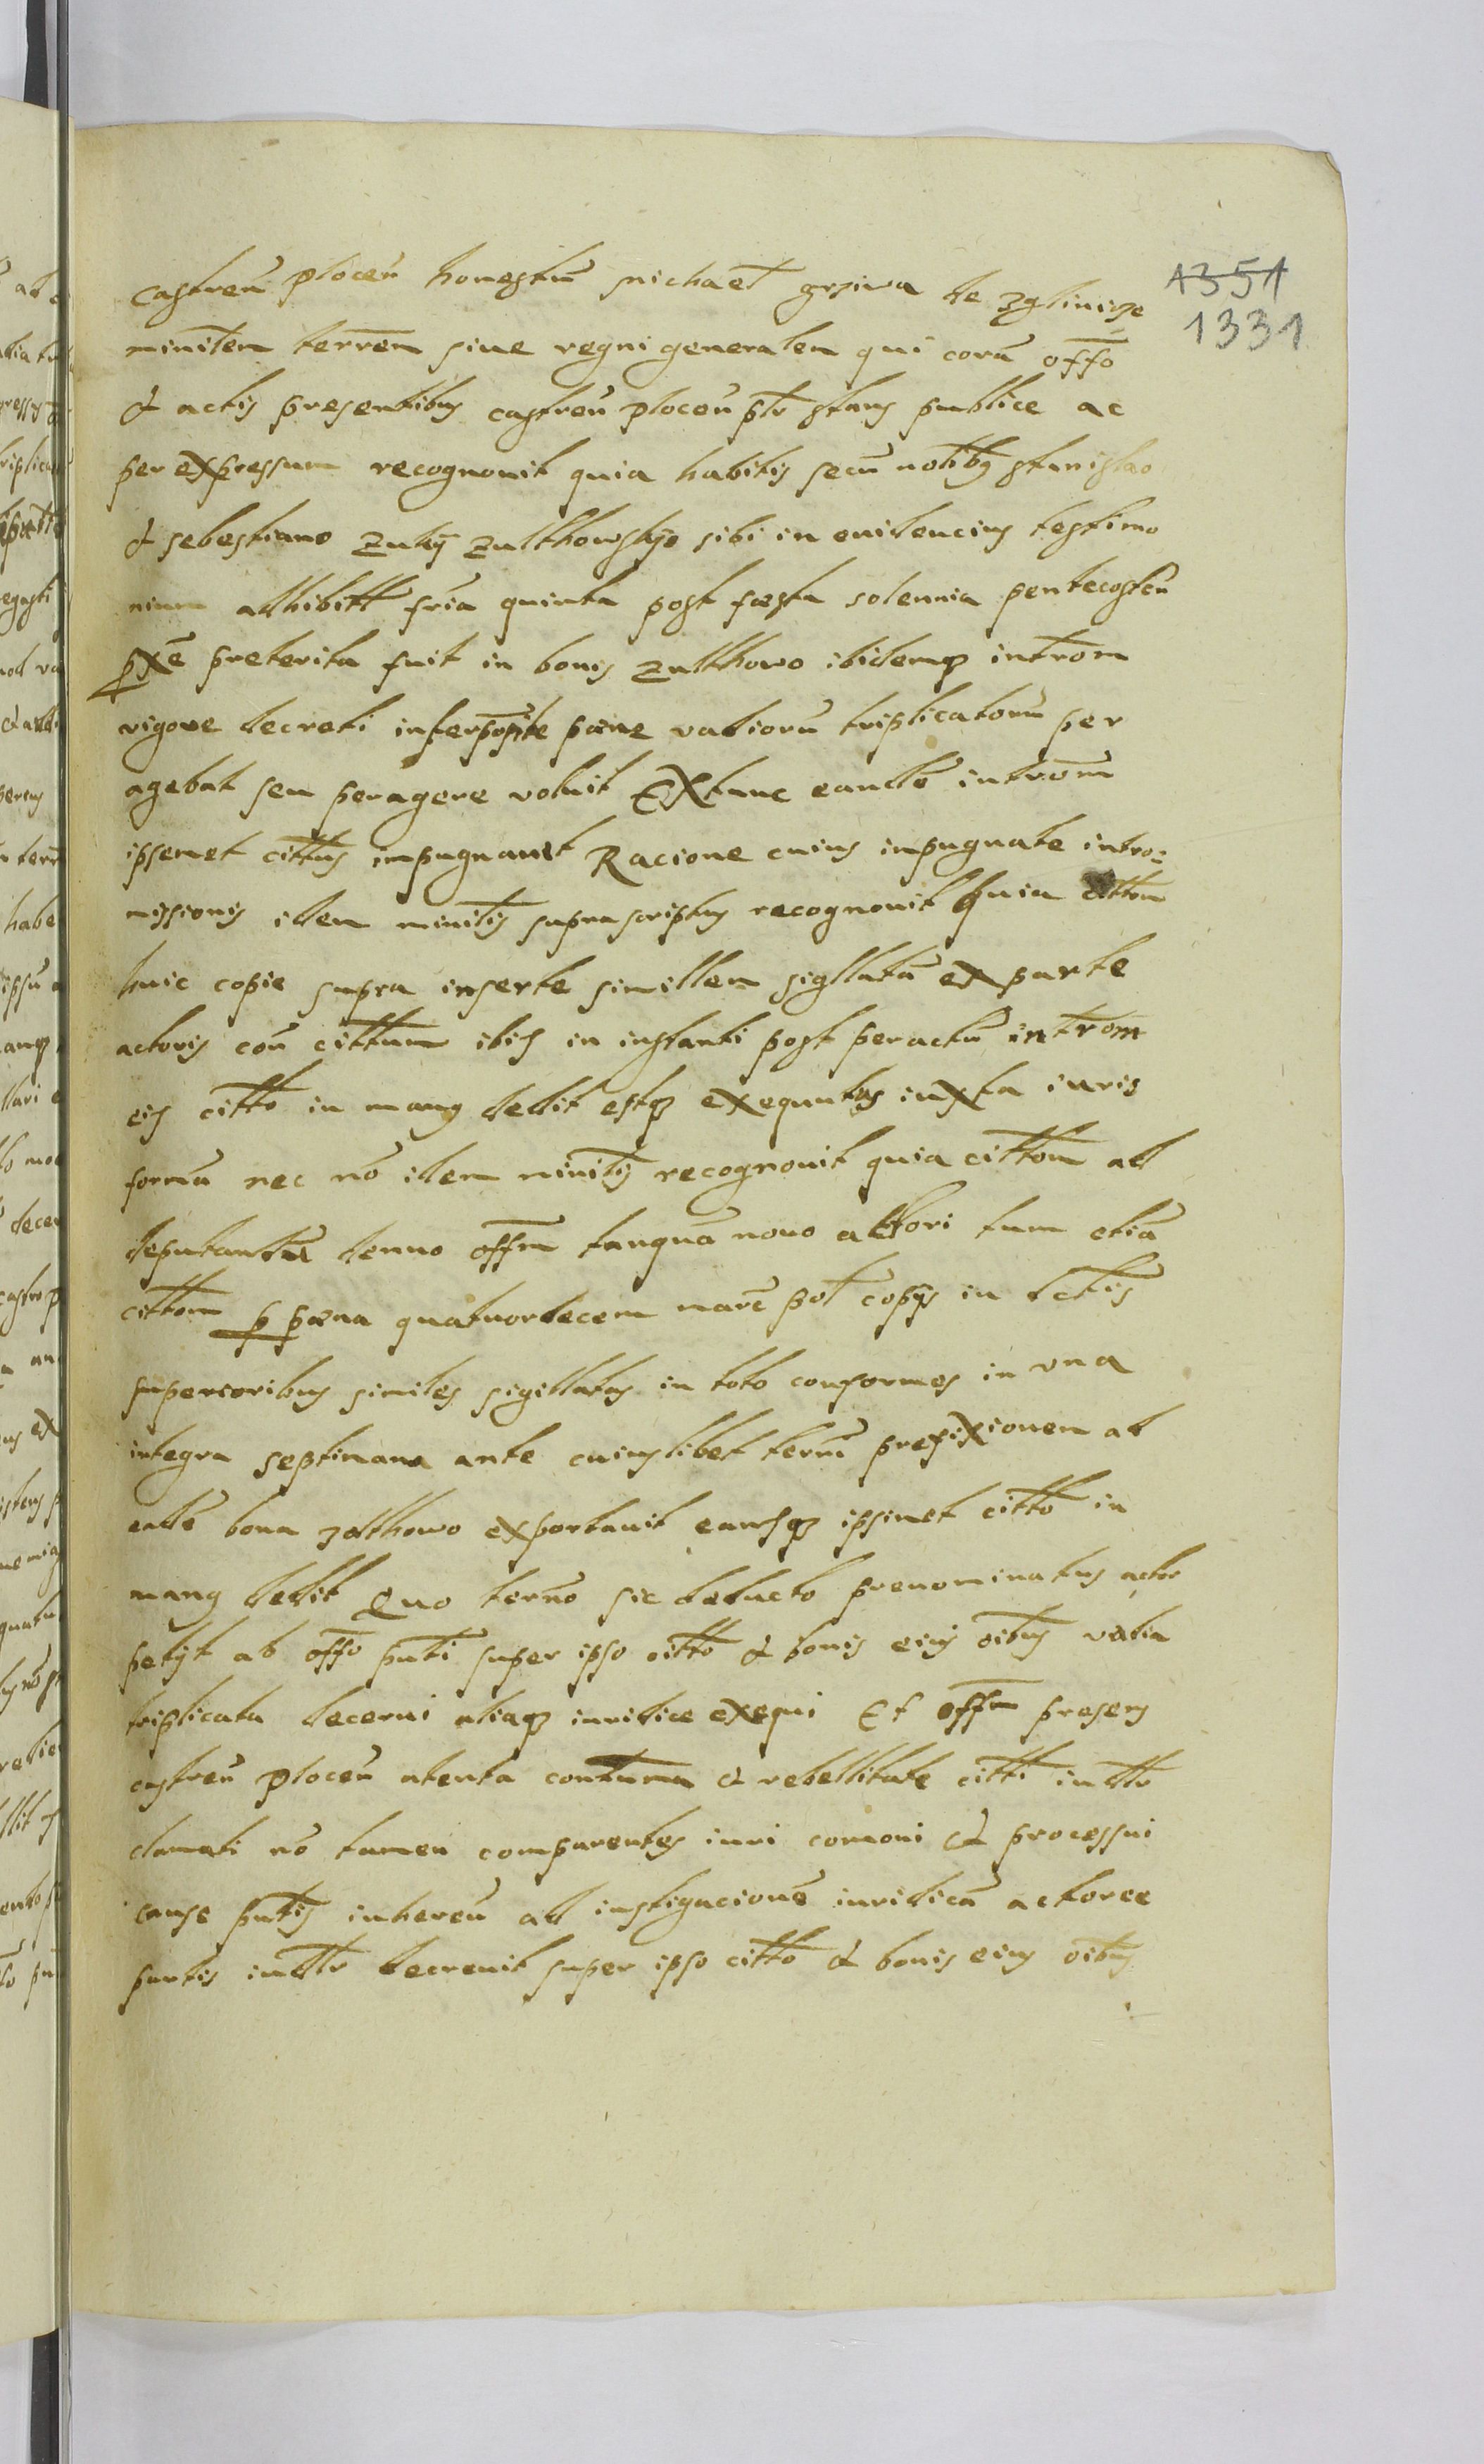 1351
1331
castreñ ploceñ honestũ michael̃ grziwa de zglinicze
minilem̃ terrem̃ siue regni generalem qui corã offo
& actis presentibus castreñ ploceñ pltr stans publice ac
per expressum recognouit quia habitis secũ nolibus stanislao
& sebestiano zulthowskye sibi in euidencius testimo
nium adhibitt fria quinta post festa solennia pentecosten
pxẽ preterita fuit in bonis zulthowo ibidemq introm̃
vigore decreti inferposite pœne vadiorũ triplicatorũ per
agebat seu peragere voluit Extunc eandẽ introm̃
ipsemet cittus impugnauit Racione cuius inpugnate intro=
missionis idem minilis supra scriptus recognouit quia cittom
huic copie supra inserte simillem sigllatã ex parte
actoris coñ cittum ibid in instanti post peractũ introm̃
eid citto in manus dedit estq exequutus iuxta iuris
formã nec nõ idem minilis recognouit quia cittom ad
deputandũ denuo offm tanquã nouo actori tum etiã
cittom p pœna quatuordecem marc pol copijs in actis
superioribus similes sigillatas in toto conformes in vna
integra septimana ante cuiuslibet termi prefixionem ad
eadẽ bona zolthowo exportauit easdq ipsimet citto in
manus dedit Quo termo sic deducto prenominatus actor
petijt ab offo pnti super ipso citto & bonis eius oibus vadia
triplicata decerni aliaq iuridice exequi Et offm presens
castreñ ploceñ atenta contuma & rebellitate citti iudltr
clamati nõ tamen comparentes iuri comoni & processui
cause pntis inhereñ ad instigacionẽ iuridicã actoree
partis iudltr decreuit super ipso citto & bonis eius oibus